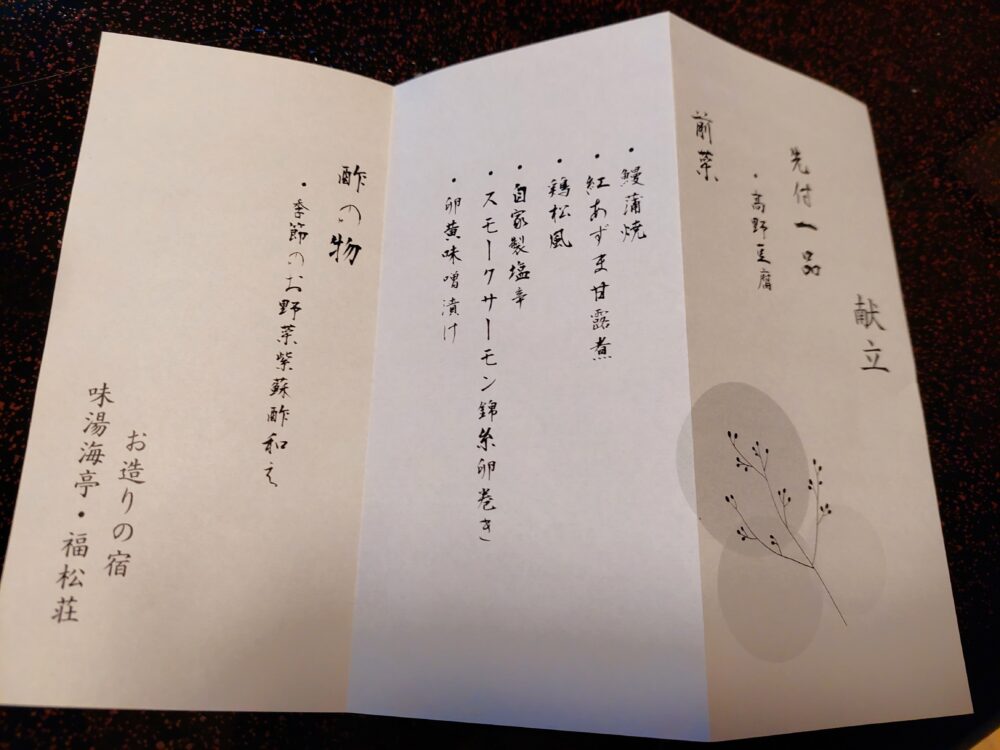 献立
先付一品
・高野豆腐
前菜
・鰻蒲焼
・紅あずま甘露煮
・鶏松風
・自家製塩辛
・スモークサーモン錦糸卵巻き
・卵黄味噌漬け
酢の物
・季節のお野菜紫蘇酢和え
お造りの宿
味湯海亭・福松荘